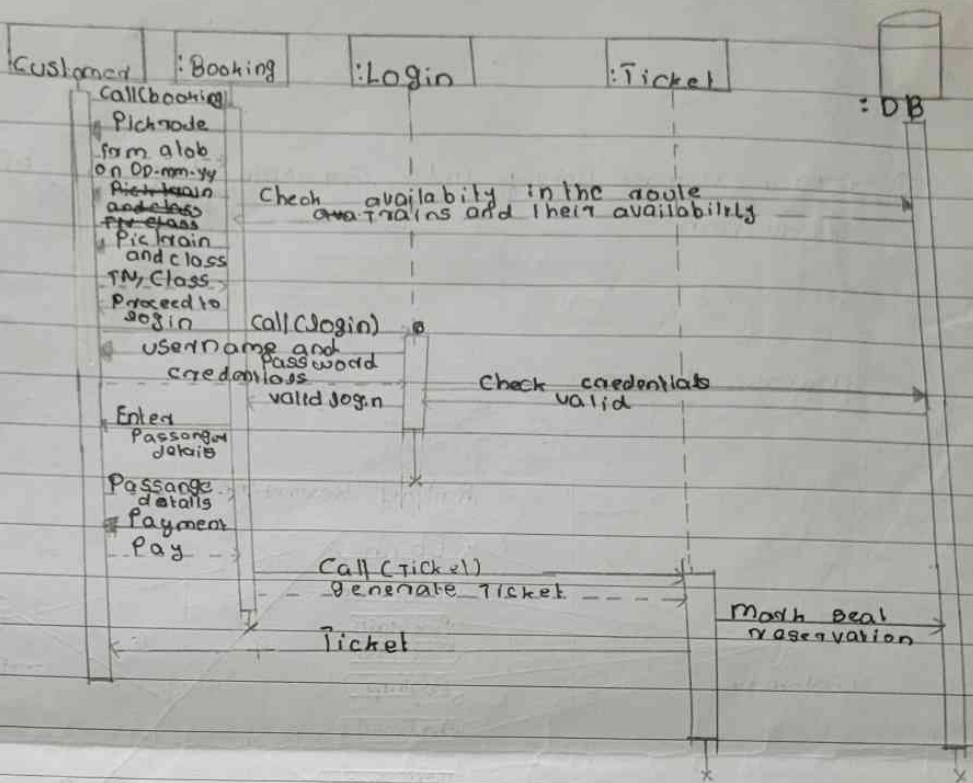 :Customer
:Booking
:Login
:Ticket
:DB
Call(booking)
Pick
from a to b
on DD-mm-yy
Check availabity in the route
Trains and their availability
Pic train
and class
TN, Class
Proceed to
login
Call(login)
username and
Password
valid login
Check credentials
valid
Enter
Passanger
details
Passange
details
Payment
Pay
Call(Ticket)
generate Ticket
Mark seat
Ticket